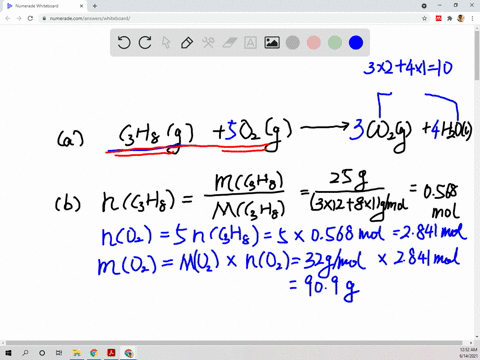 Numerade Whiteboard
numerade.com/answers/whiteboard/
3×2+4×1=10
(a) C3H8(g) + 5O2(g) ⟶ 3CO2(g) + 4H2O(l)
(b) n(C3H8) = m(C3H8)/M(C3H8) = 25g/(3×12+8×1)g/mol = 0.568 mol
n(O2) = 5 n(C3H8) = 5 × 0.568 mol = 2.841 mol
m(O2) = M(O2) × n(O2) = 32g/mol × 2.841 mol
= 90.9 g
12:52 AM
6/14/2021